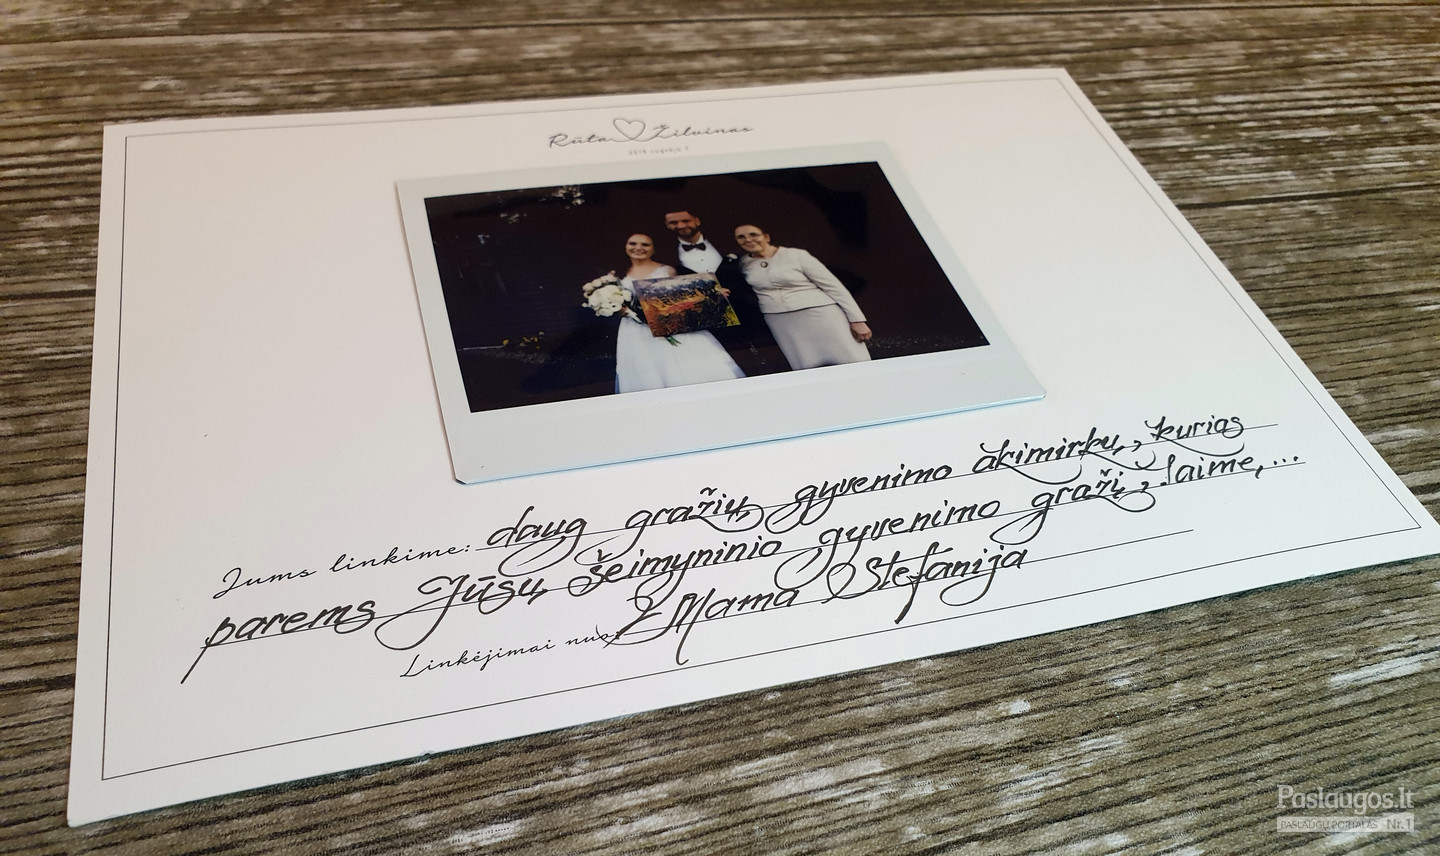 Rūta Žilvinas
Jums linkime: daug gražių gyvenimo akimirkų, kurias
parems Jūsų šeimyninio gyvenimo graži laimė,...
Linkėjimai nuo: Mama Stefanija
Paslaugos.lt
PASLAUGŲ PORTALAS Nr.1